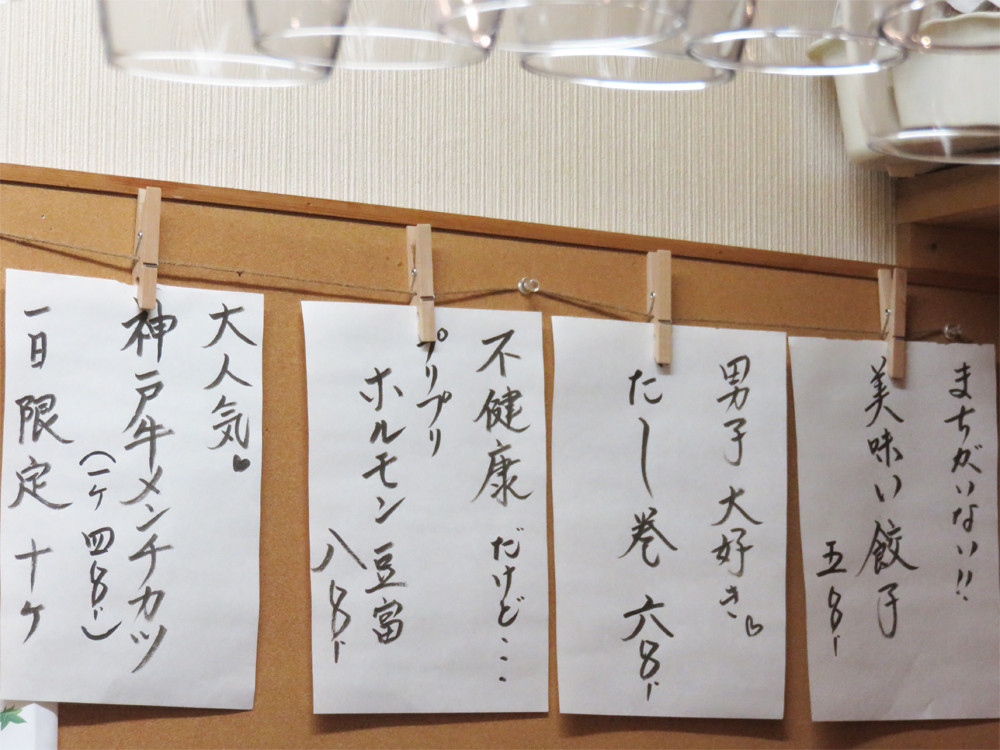 まちがいない!!
美味い餃子
五〇〇-
男子 大好き♡
たし巻 六〇〇-
不健康 だけど・・・
プリプリ
ホルモン豆富
八〇〇-
大人気♥
神戸牛メンチカツ
(一ケ 四〇〇-)
一日限定 十ケ